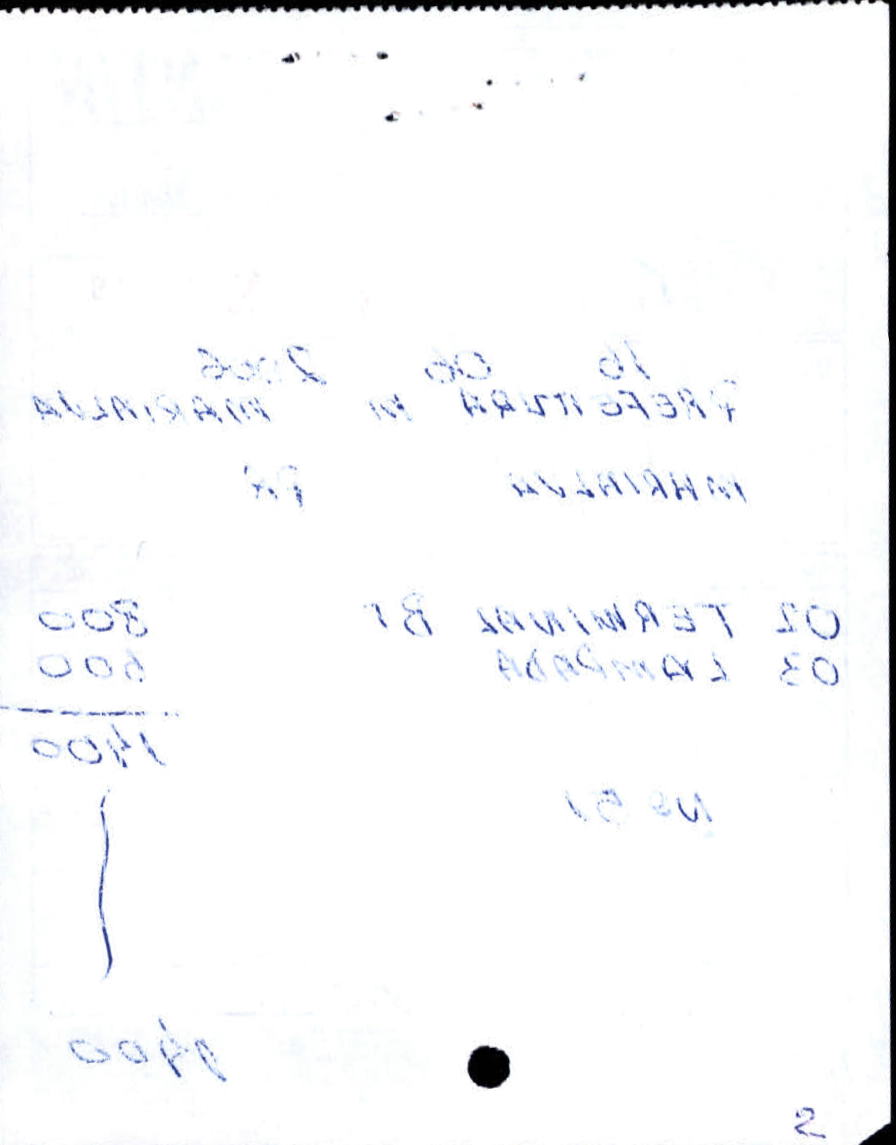 16 06 2006
PREFEITURA M MARIALVA
MARIALVA PR
02 TERMINAL B1 800
03 LAMPADA 600
1400
No 51
1400
2